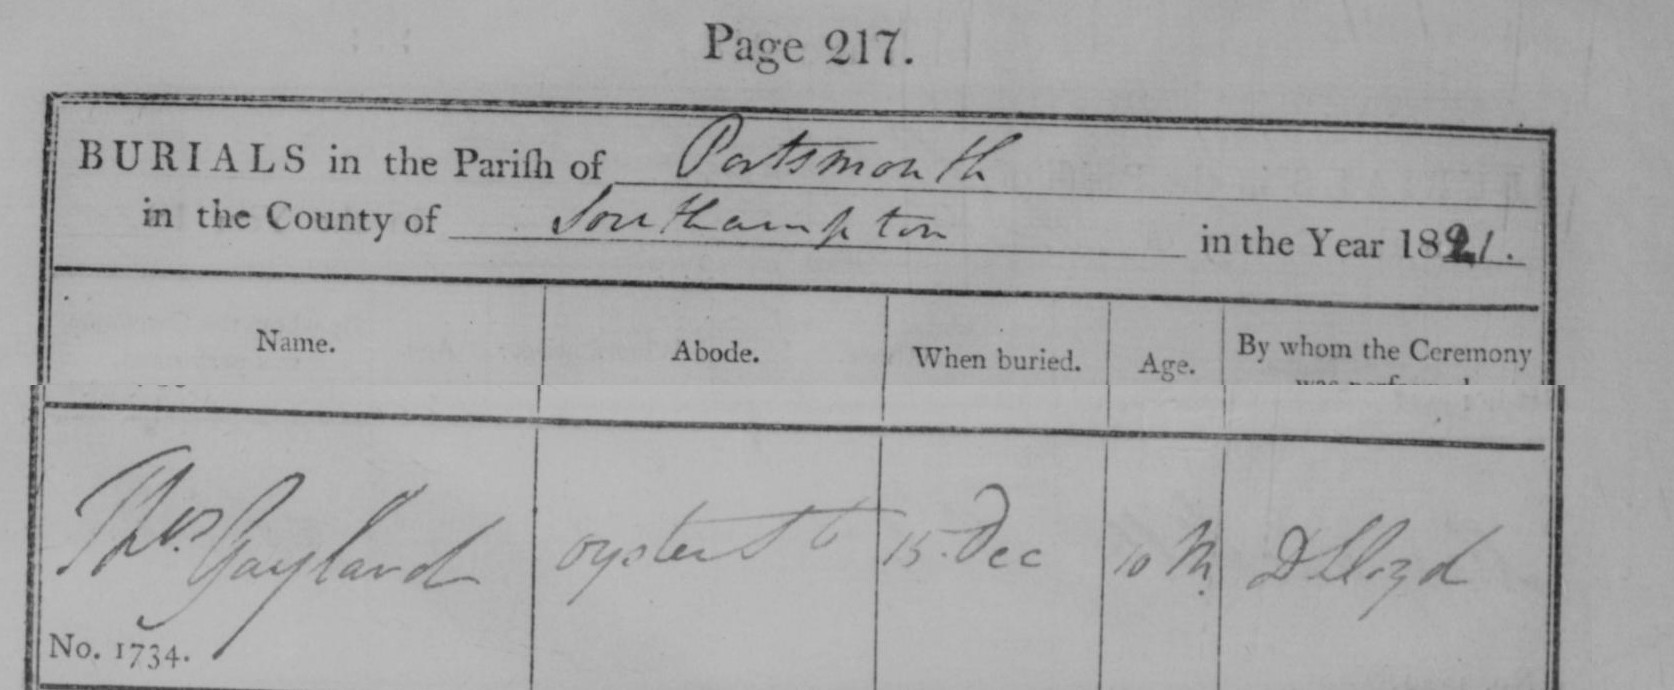 Page 217.
BURIALS in the Pariſh of Portsmouth
in the County of Southampton in the Year 1821.
Name. Abode. When buried. Age. By whom the Ceremony
was performed
Thos. Gayland oyster St 15. Dec 10 M. D Lloyd
No. 1734.